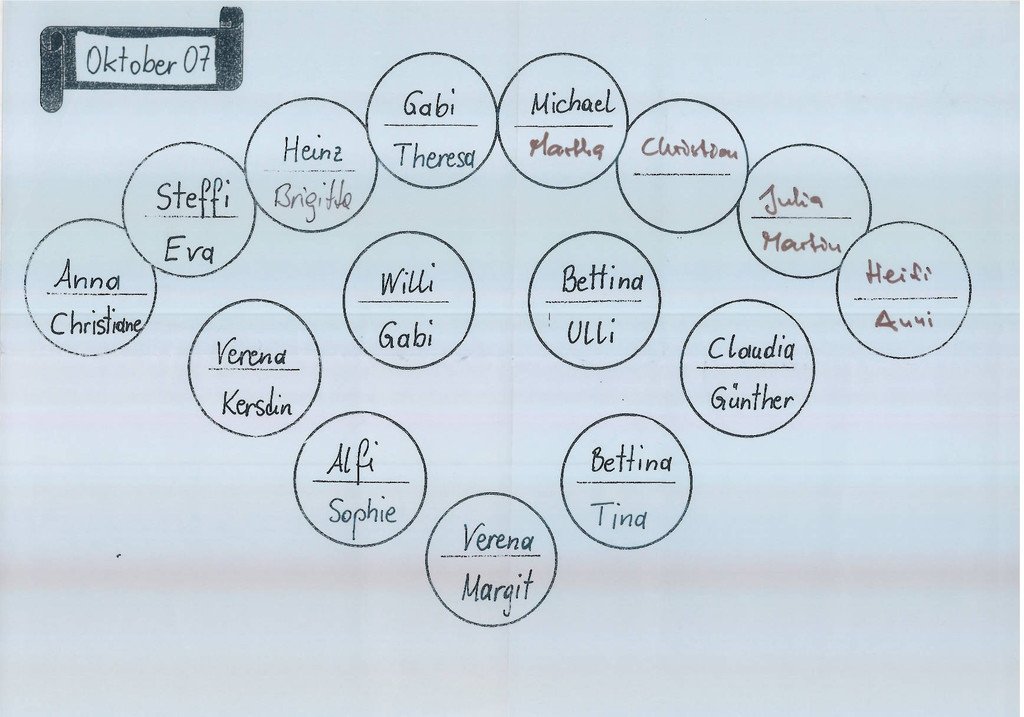 Oktober 07
Gabi
Theresa
Michael
Martha
Heinz
Brigitte
Christian
Steffi
Eva
Julia
Martin
Anna
Christiane
Willi
Gabi
Bettina
Ulli
Heidi
Anni
Verena
Kersdin
Claudia
Günther
Alfi
Sophie
Bettina
Tina
Verena
Margit